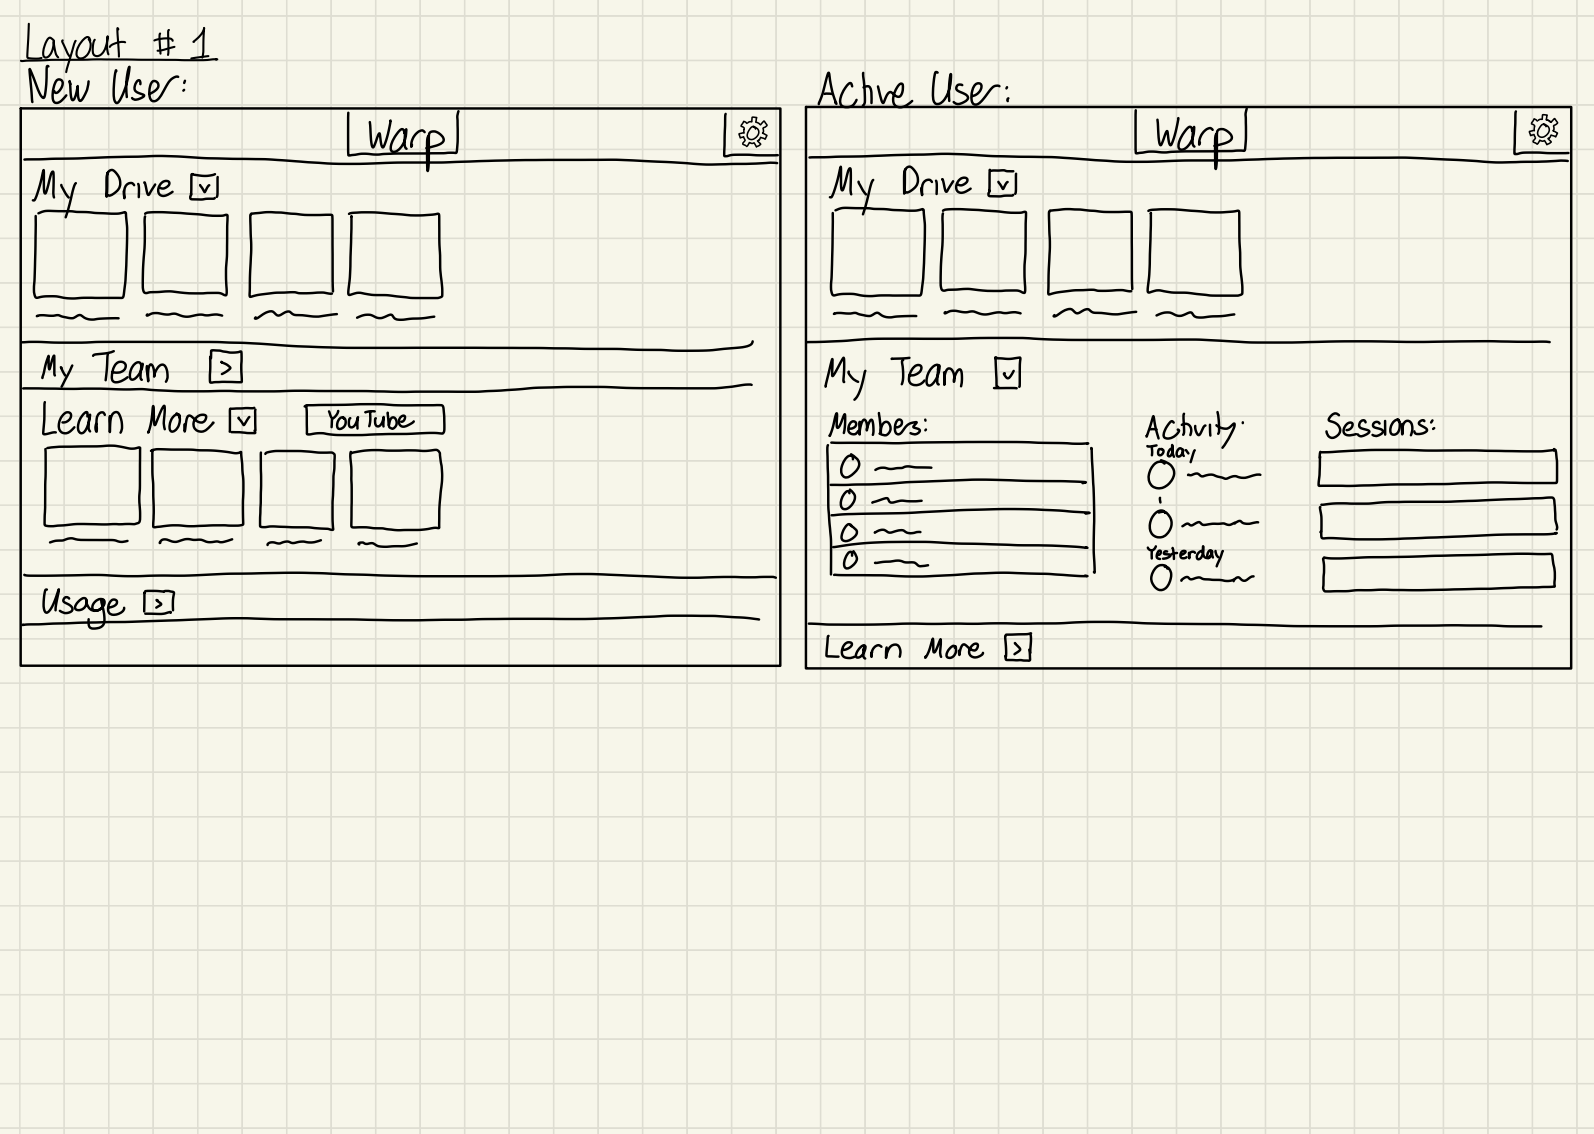 Layout #1
New User:
Warp
My Drive
My Team
Learn More
YouTube
Usage
Active User:
Warp
My Drive
My Team
Members:
Activity:
Today
Yesterday
Sessions:
Learn More